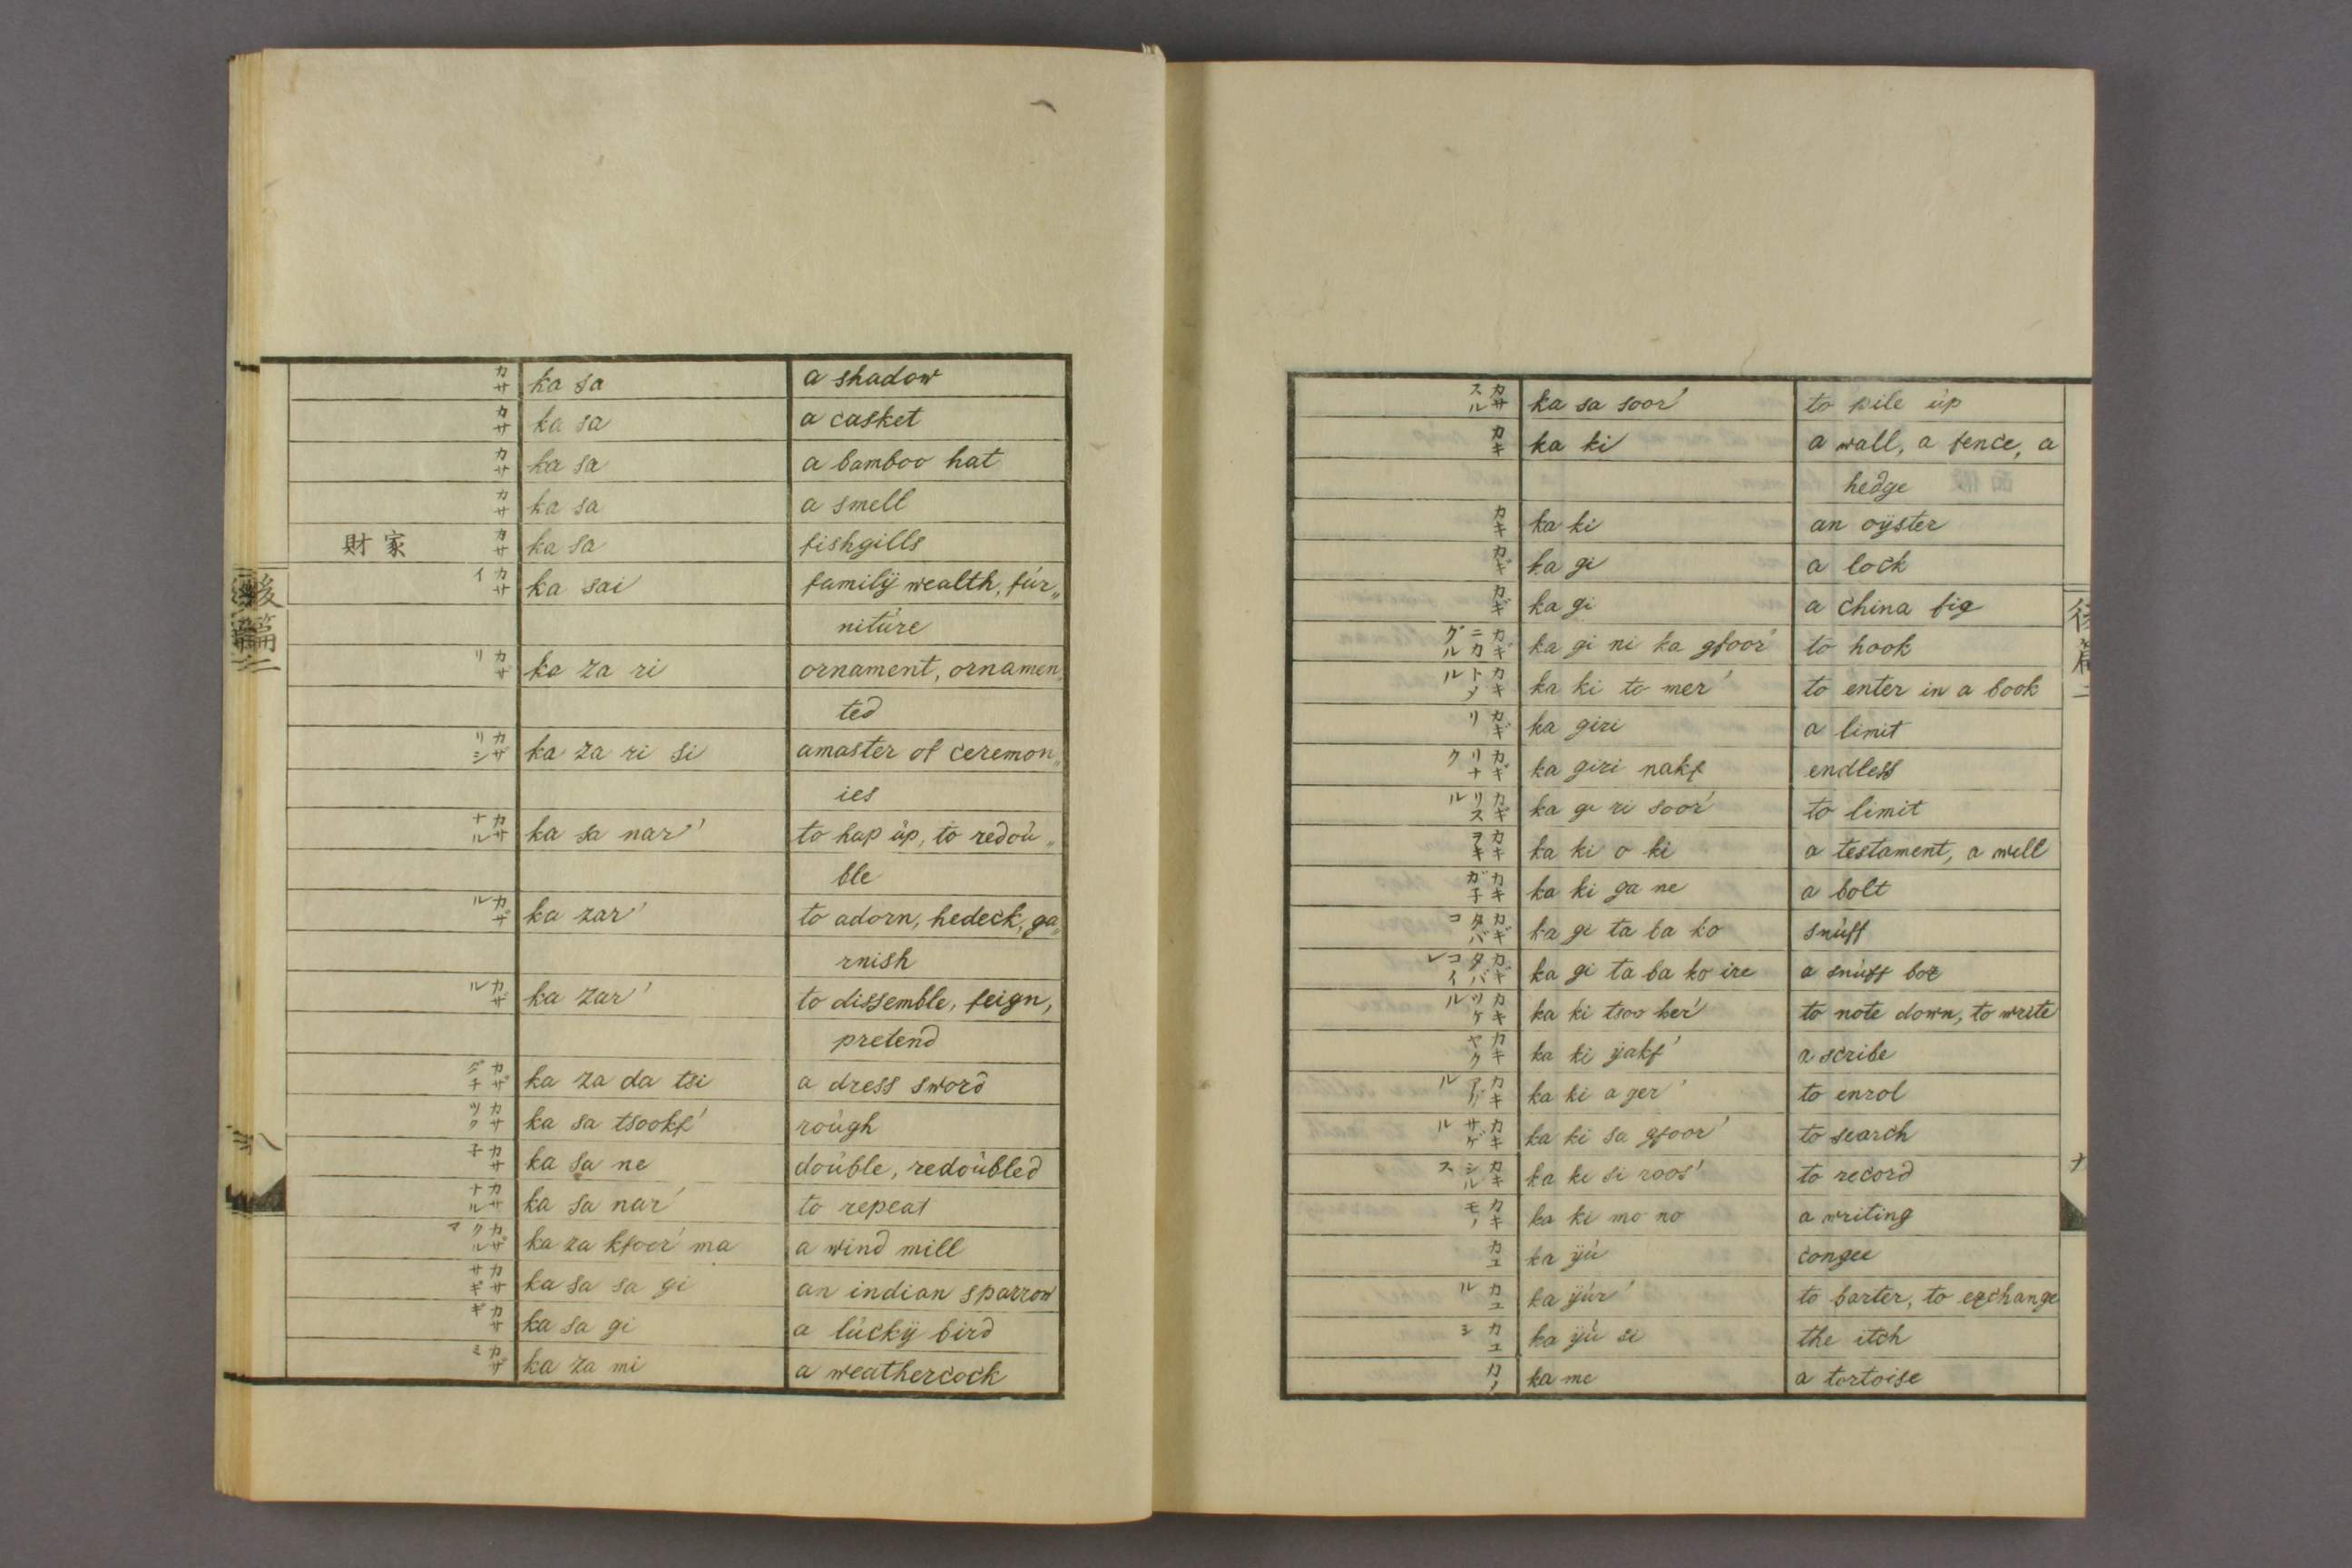 カサ ka sa a shadow
カサ ka sa a casket
カサ ka sa a bamboo hat
カサ ka sa a smell
財家 カサ ka sa fishgills
カサイ ka sai familÿ wealth, fúr„
nitúre
カザリ ka za ri ornament, ornamen„
ted
カザリシ ka za ri si amaster of ceremon„
ies
カサナル ka sa nar' to hap úp, to redoú„
ble
カザル ka zar' to adorn, hedeck, ga„
rnish
カザル ka zar' to dissemble, feign,
pretend
カザダチ ka za da tsi a dress sword
カサツク ka sa tsookf' roúgh
カサ子 ka sa ne doúble, redoúbled
カサナル ka sa nar' to repeat
カザクルマ ka za kfoor' ma a wind mill
カササギ ka sa sa gi an indian sparrow
カサギ ka sa gi a lúckÿ bird
カザミ ka za mi a weathercock
後篇二
八
カサスル ka sa soor' to pile úp
カキ ka ki a wall, a fence, a
hedge
カキ ka ki an oÿster
カギ ka gi a lock
カギ ka gi a china fig
カギニカグル ka gi ni ka gfoor' to hook
カキトメル ka ki to mer' to enter in a book
カギリ ka giri a limit
カギリナク ka giri nakf endless
カギリスル ka gi ri soor' to limit
カキヲキ ka ki o ki a testament, a will
カキガ子 ka ki ga ne a bolt
カギタバコ ka gi ta ba ko snúff
カギタバコイレ ka gi ta ba ko ire a snúff box
カキツケル ka ki tsoo ker' to note down, to write
カキヤク ka ki ÿakf' a scribe
カキアゲル ka ki a ger' to enrol
カキサゲル ka ki sa gfoor' to search
カキシルス ka ki si roos' to record
カキモノ ka ki mo no a writing
カユ ka ÿú congee
カユル ka ÿúr' to barter, to exchange
カユシ ka ÿú si the itch
カメ ka me a tortoise
後篇二